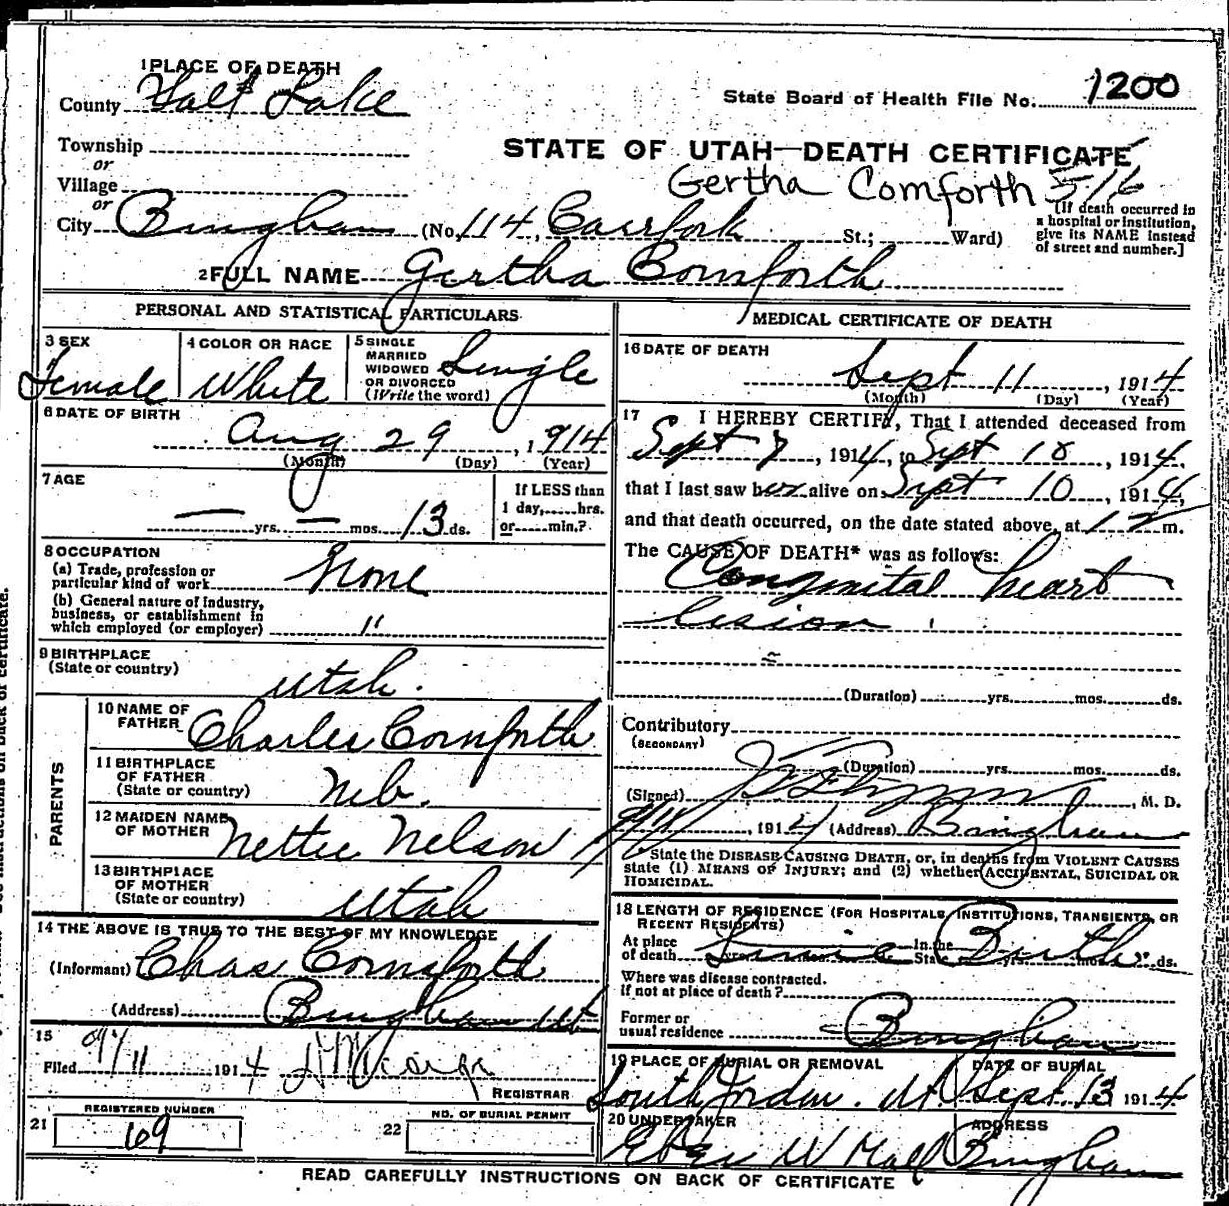 1 PLACE OF DEATH
County Salt Lake
State Board of Health File No. 1200
Township
or
Village
or
STATE OF UTAH—DEATH CERTIFICATE
Gertha Comforth 516
City Bingham (No. 114, Carrfork St.; Ward)
[If death occurred in a hospital or institution, give its NAME instead of street and number.]
2 FULL NAME Gertha Cornforth
PERSONAL AND STATISTICAL PARTICULARS
3 SEX Female
4 COLOR OR RACE White
5 SINGLE MARRIED WIDOWED OR DIVORCED (Write the word) Single
6 DATE OF BIRTH
Aug 29, 1914
(Month) (Day) (Year)
7 AGE
— yrs. — mos. 13 ds.
If LESS than 1 day, hrs. or min.?
8 OCCUPATION
(a) Trade, profession or particular kind of work None
(b) General nature of industry, business, or establishment in which employed (or employer) "
9 BIRTHPLACE
(State or country) Utah.
PARENTS
10 NAME OF FATHER Charles Cornforth
11 BIRTHPLACE OF FATHER (State or country) Neb.
12 MAIDEN NAME OF MOTHER Nettie Nelson
13 BIRTHPLACE OF MOTHER (State or country) Utah
14 THE ABOVE IS TRUE TO THE BEST OF MY KNOWLEDGE
(Informant) Chas Cornforth
(Address) Bingham Ut
15
Filed 9/11 1914
REGISTRAR
21 REGISTERED NUMBER 69
22 NO. OF BURIAL PERMIT
MEDICAL CERTIFICATE OF DEATH
16 DATE OF DEATH
Sept 11, 1914
(Month) (Day) (Year)
17 I HEREBY CERTIFY, That I attended deceased from
Sept 7, 1914, to Sept 10, 1914,
that I last saw her alive on Sept 10, 1914,
and that death occurred, on the date stated above, at 12 m.
The CAUSE OF DEATH* was as follows:
Congenital heart
lesion
(Duration) yrs. mos. ds.
Contributory
(SECONDARY)
(Duration) yrs. mos. ds.
(Signed) , M. D.
9/11, 1914 (Address) Bingham
State the DISEASE CAUSING DEATH, or, in deaths from VIOLENT CAUSES
state (1) MEANS OF INJURY; and (2) whether ACCIDENTAL, SUICIDAL OR
HOMICIDAL.
18 LENGTH OF RESIDENCE (FOR HOSPITALS, INSTITUTIONS, TRANSIENTS, OR
RECENT RESIDENTS)
At place of death yrs. Since In the State Birth yrs. mos. ds.
Where was disease contracted.
If not at place of death?
Former or usual residence Bingham
19 PLACE OF BURIAL OR REMOVAL South Jordan. Ut
DATE OF BURIAL Sept. 13 1914
20 UNDERTAKER Eber W Hall
ADDRESS Bingham
READ CAREFULLY INSTRUCTIONS ON BACK OF CERTIFICATE